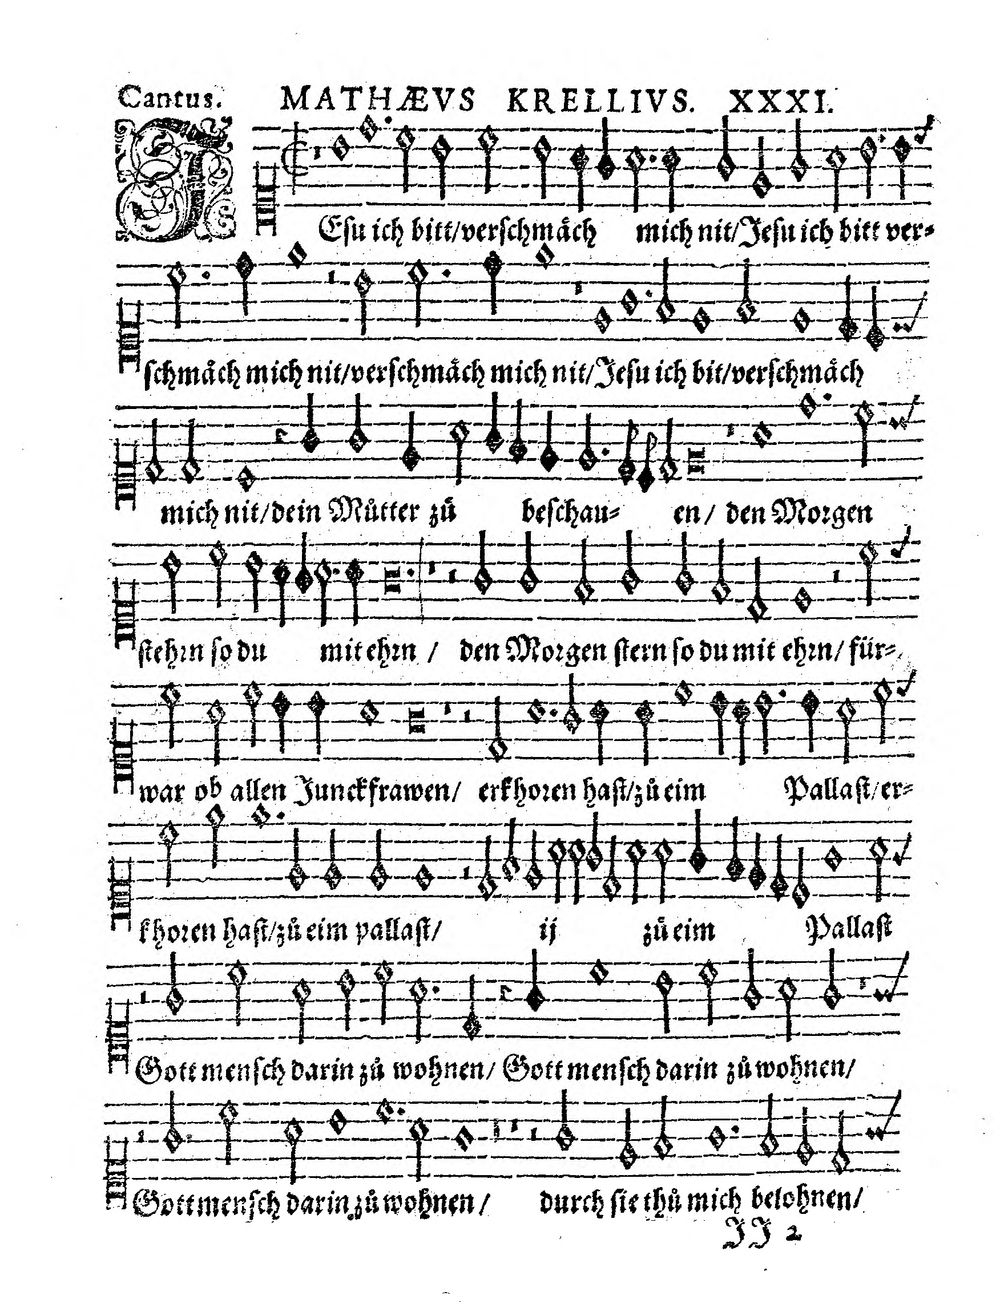 Cantus. MATHÆVS KRELLIVS. XXXI.
JEsu ich bitt/verschmäch mich nit/Jesu ich bitt ver-
schmäch mich nit/verschmäch mich nit/Jesu ich bit/verschmäch
mich nit/dein Můtter zů beschau- en/ den Morgen
stehrn so du mit ehrn / den Morgen stern so du mit ehrn/ für-
war ob allen Junckfrawen/ erkhoren hast/zů eim Pallast/er-
khoren hast/zů eim pallast/ ij zů eim Pallast
Gott mensch darin zů wohnen/ Gott mensch darin zů wohnen/
Gott mensch darin zů wohnen/ durch sie thů mich belohnen/
JJ 2